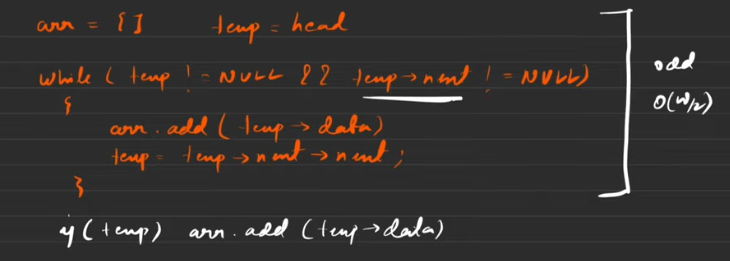 arr = [ ]   temp = head
while ( temp != NULL && temp → next != NULL)
{
arr.add ( temp → data)
temp = temp → next → next ;
}
if (temp) arr.add (temp → data)
odd
O(N/2)